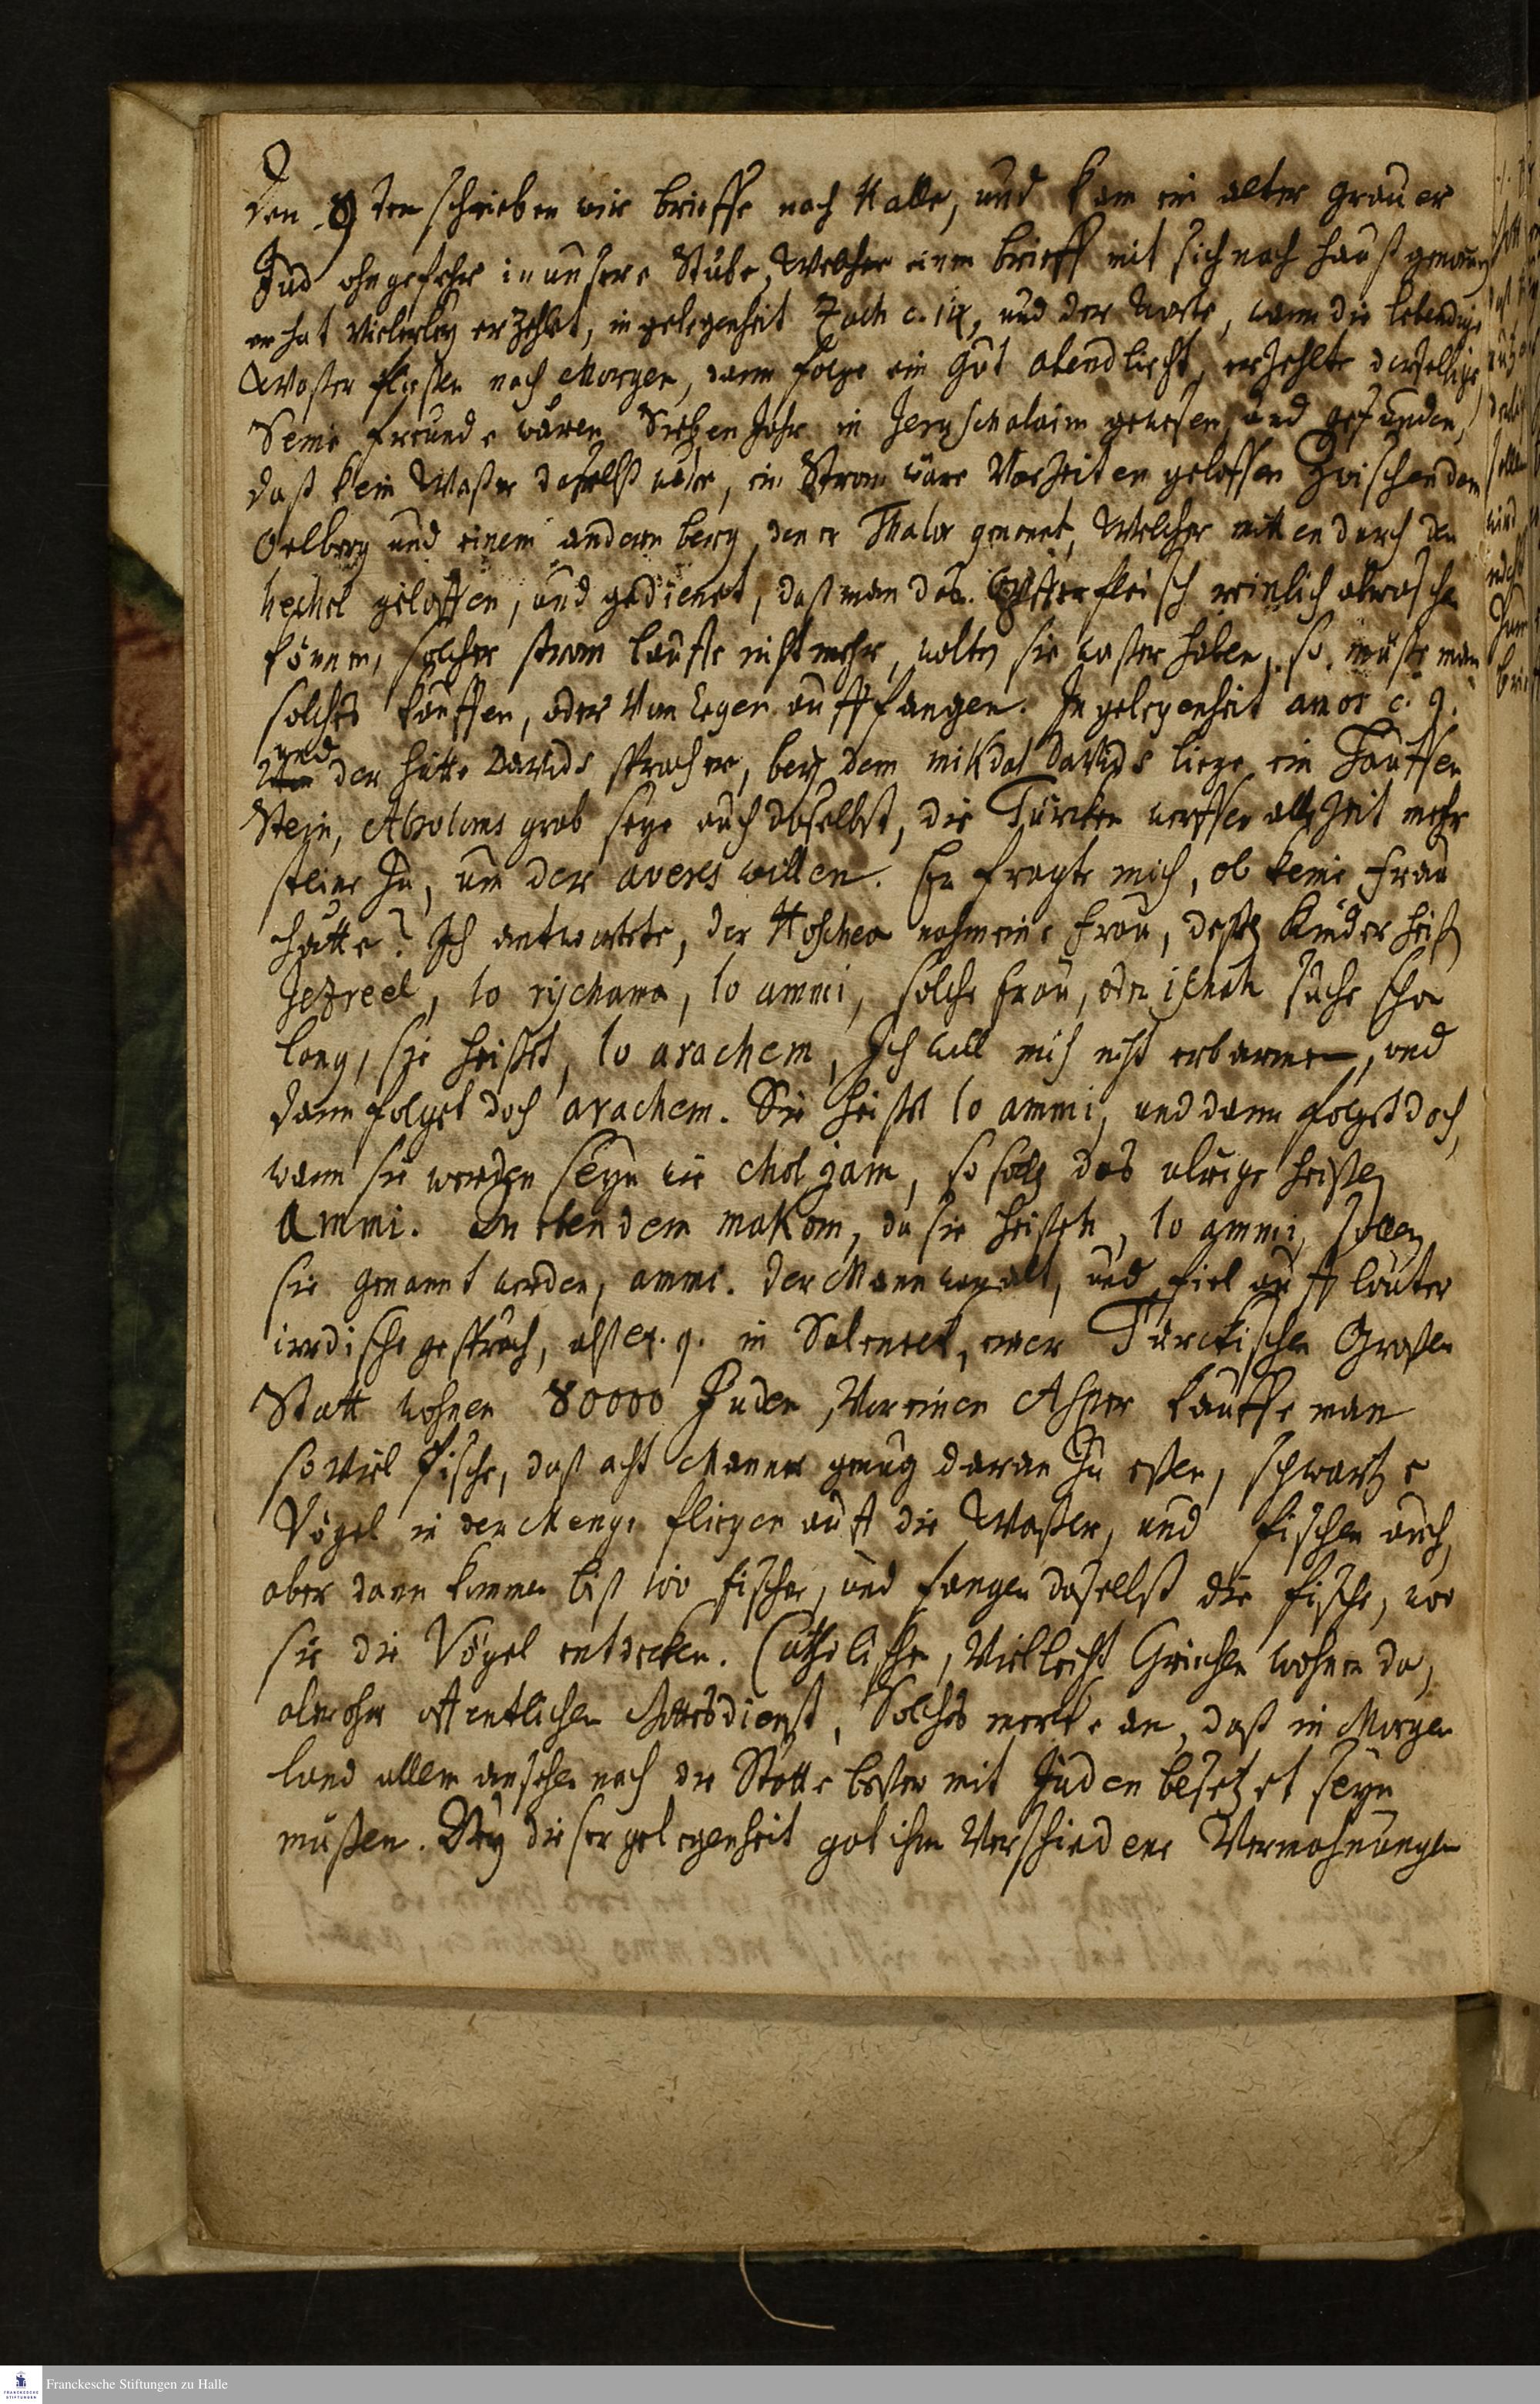 Den 9 ten schrieben wir brieffe nach Halle, und kam ein alter grauer
Jud ohngefehr in unsere Stube, Welcher einen brieff mit sich nach hauß genommen
er hat Vielerley erzehlet, in gelegenheit Zach c. 14, und der Worte, wann die lebendige
Waßer fließen nach Morgen, dann folge ein gut abendlicht, erzehlte derselbige,
Seine freunde wären Sieben Jahr in Jeruscholaim gewesen, und gefunden,
daß kein Waßer daselbst wäre, ein Strom wäre Vorzeiten geloffen Zwischen dem
Oelberg und einem andern berg, den er Thabor genennt, Welcher mitten durch den
hechel geloffen, und gedienet, daß man das Opfferfleisch reinlich abwaschen
können, solcher strom lauffe nicht mehr, wolten sie waßer haben, so müste man
solches kauffen, oder Vom regen aufffangen. In gelegenheit amos c. 9.
und der hütte Davids sprach er, bey dem mikdal Davids liege ein Hauffen
Stein, Absoloms grab seye auch daselbst, die Türcken werffen allezeit mehr
steine zu, um der averes willen. Er fragte mich, ob keine Frau
hätte? Ich antwortete, der Hoschea nahm eine Frau, deßen Kinder hießen
Jezreel, lo rychama, lo ammi, solche Frau, oder ischah suche schon
lang, sie heißet, lo arachem, Ich will mich nicht erbarmen, und
dann folget doch arachem. Sie heißet lo ammi, und dann folget doch,
wann sie werden seyn wie chol jam, so soll das übrige heißen
Ammi. An eben dem makom, da sie heißen, lo ammi, sollen
sie genannt werden, ammi. Der Mann war alt, und fiel auff lauter
irrdische gespräch, alß e. g. in Saloneck, einer Türckischen Großen
Statt wohnen 80000 Juden, Vor einen Asper kauffe man
so viel Fische, daß acht Männer genug daran zu eßen, schwartze
Vögel in der Menge fliegen auff die Waßer, und fischen auch,
aber dann kommen biß 100 fischer, und fangen daselbst die fische, wo
sie die Vögel entdecken. Catholische, Vielleicht Griechen wohnen da,
aber ohne öffentlichen Gottesdienst, Solches merke an, daß in Morgen
land allem ansehen nach die Stätte beßer mit Juden besetzet seyn
müßen. Bey dieser gelegenheit gab ihm Verschiedene Vermahnungen
Franckesche Stiftungen zu Halle